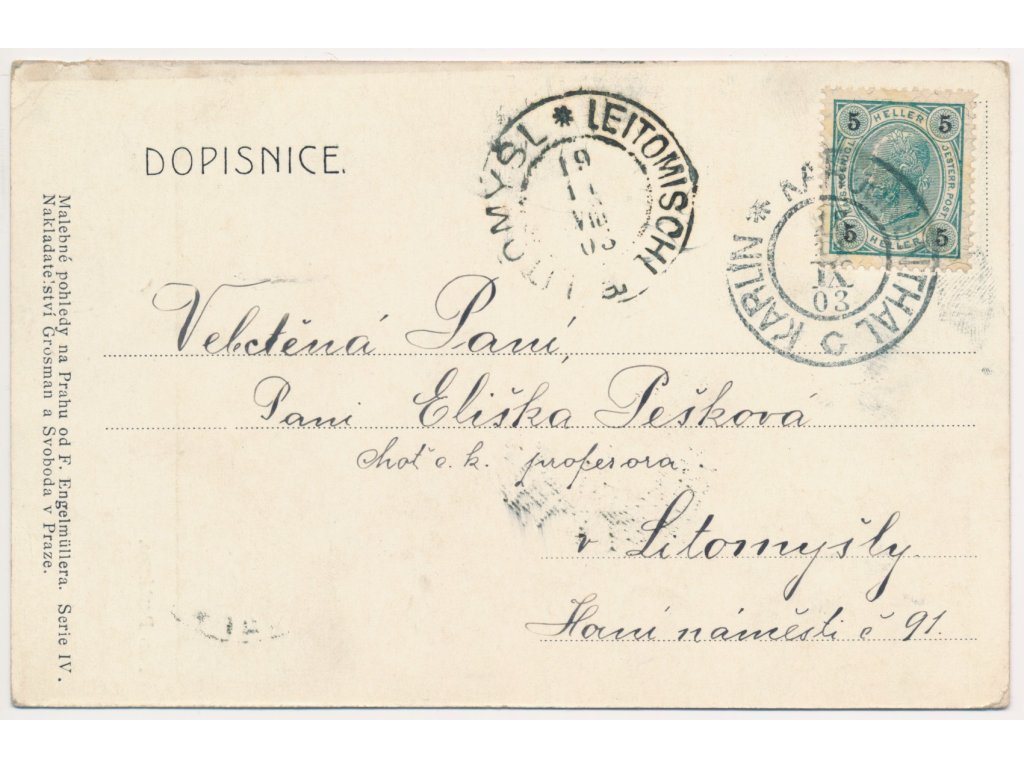 DOPISNICE.
LITOMYŠL * LEITOMISCHL
19
IX
VIII
03
5 HELLER 5
5 HELLER 5
KARLIN * THAL
IX
03
Velectěná Paní,
Paní Eliška Pešková
choť c. k. profesora.
v Litomyšly.
Horní náměstí č 91.
Malebné pohledy na Prahu od F. Engelmüllera. Serie IV.
Nakladatelství Grosman a Svoboda v Praze.